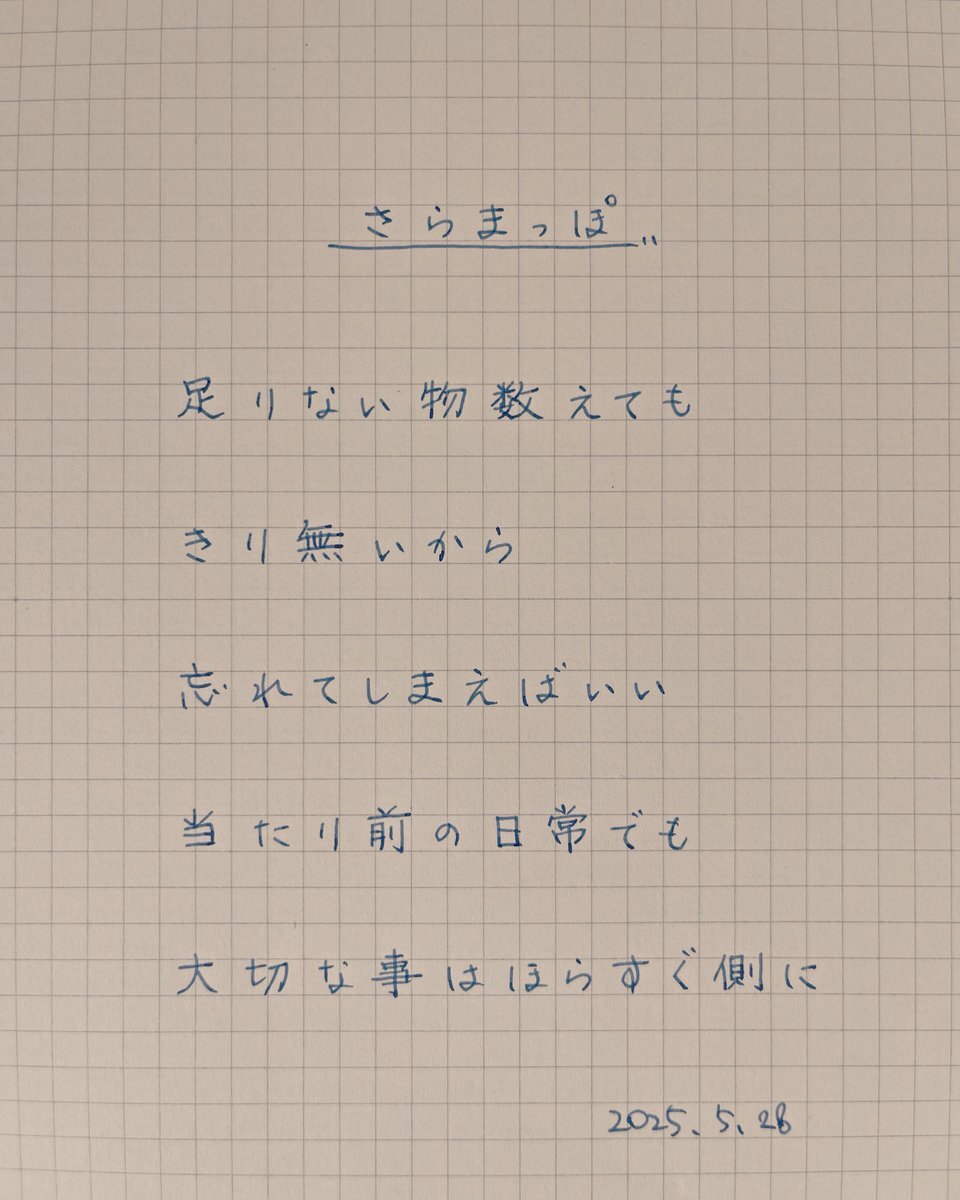 さらまっぽ
足りない物数えても
きり無いから
忘れてしまえばいい
当たり前の日常でも
大切な事はほらすぐ側に
2025.5.28